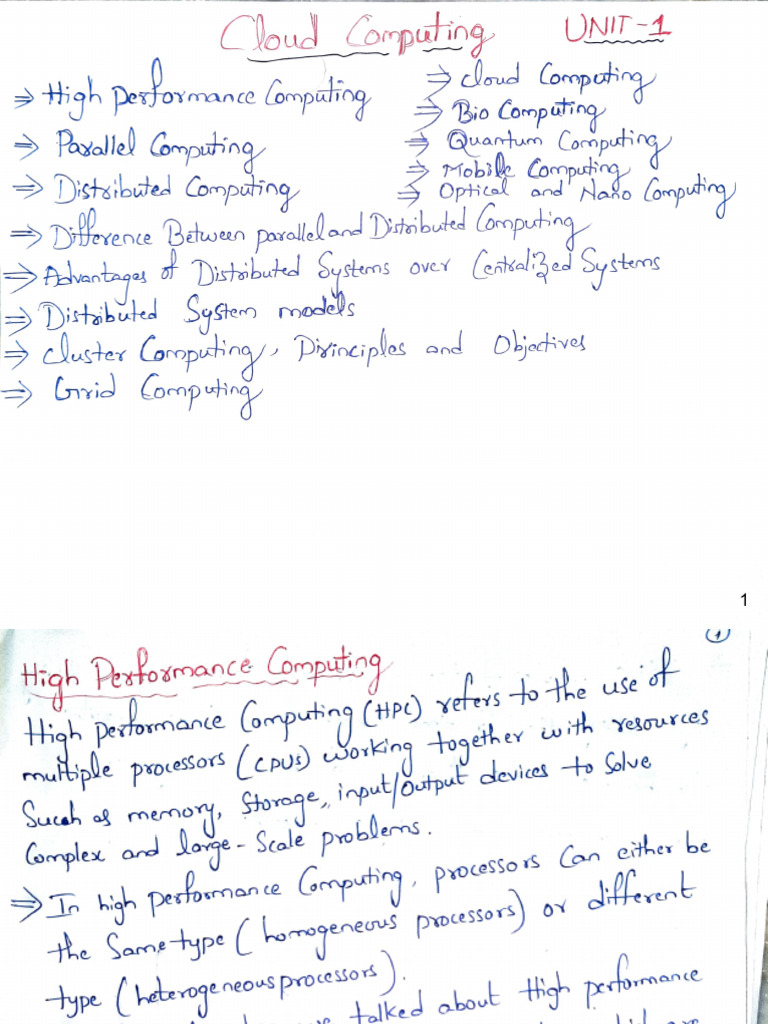 Cloud Computing UNIT-1
⇒ High performance Computing
⇒ Parallel Computing
⇒ Distributed Computing
⇒ Cloud Computing
⇒ Bio Computing
⇒ Quantum Computing
⇒ Mobile Computing
⇒ Optical and Nano Computing
⇒ Difference Between parallel and Distributed Computing
⇒ Advantages of Distributed Systems over Centralized Systems
⇒ Distributed System models
⇒ Cluster Computing, Principles and Objectives
⇒ Grid Computing
1
1
High Performance Computing
High performance Computing (HPC) refers to the use of
multiple processors (CPUs) working together with resources
Such as memory, Storage, input/output devices to Solve
Complex and large-Scale problems.
⇒ In high performance Computing, processors Can either be
the Same type (homogeneous processors) or different
type (heterogeneous processors).
talked about High performance